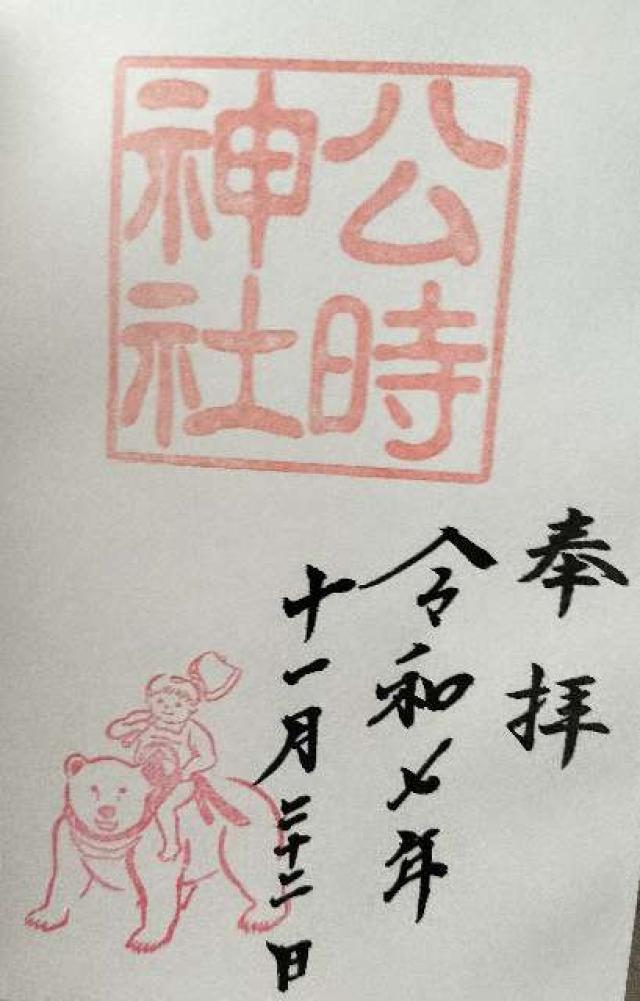 公時
神社
奉拝
令和七年
十一月二十二日